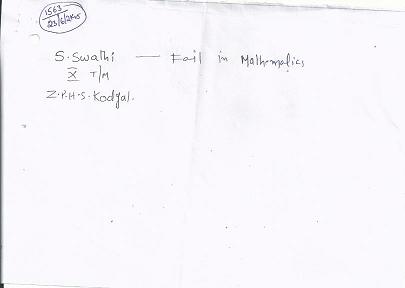 1563
23/6/2015
S. Swathi — Fail in Mathematics
X T/M
Z.P.H.S. Kodyal.